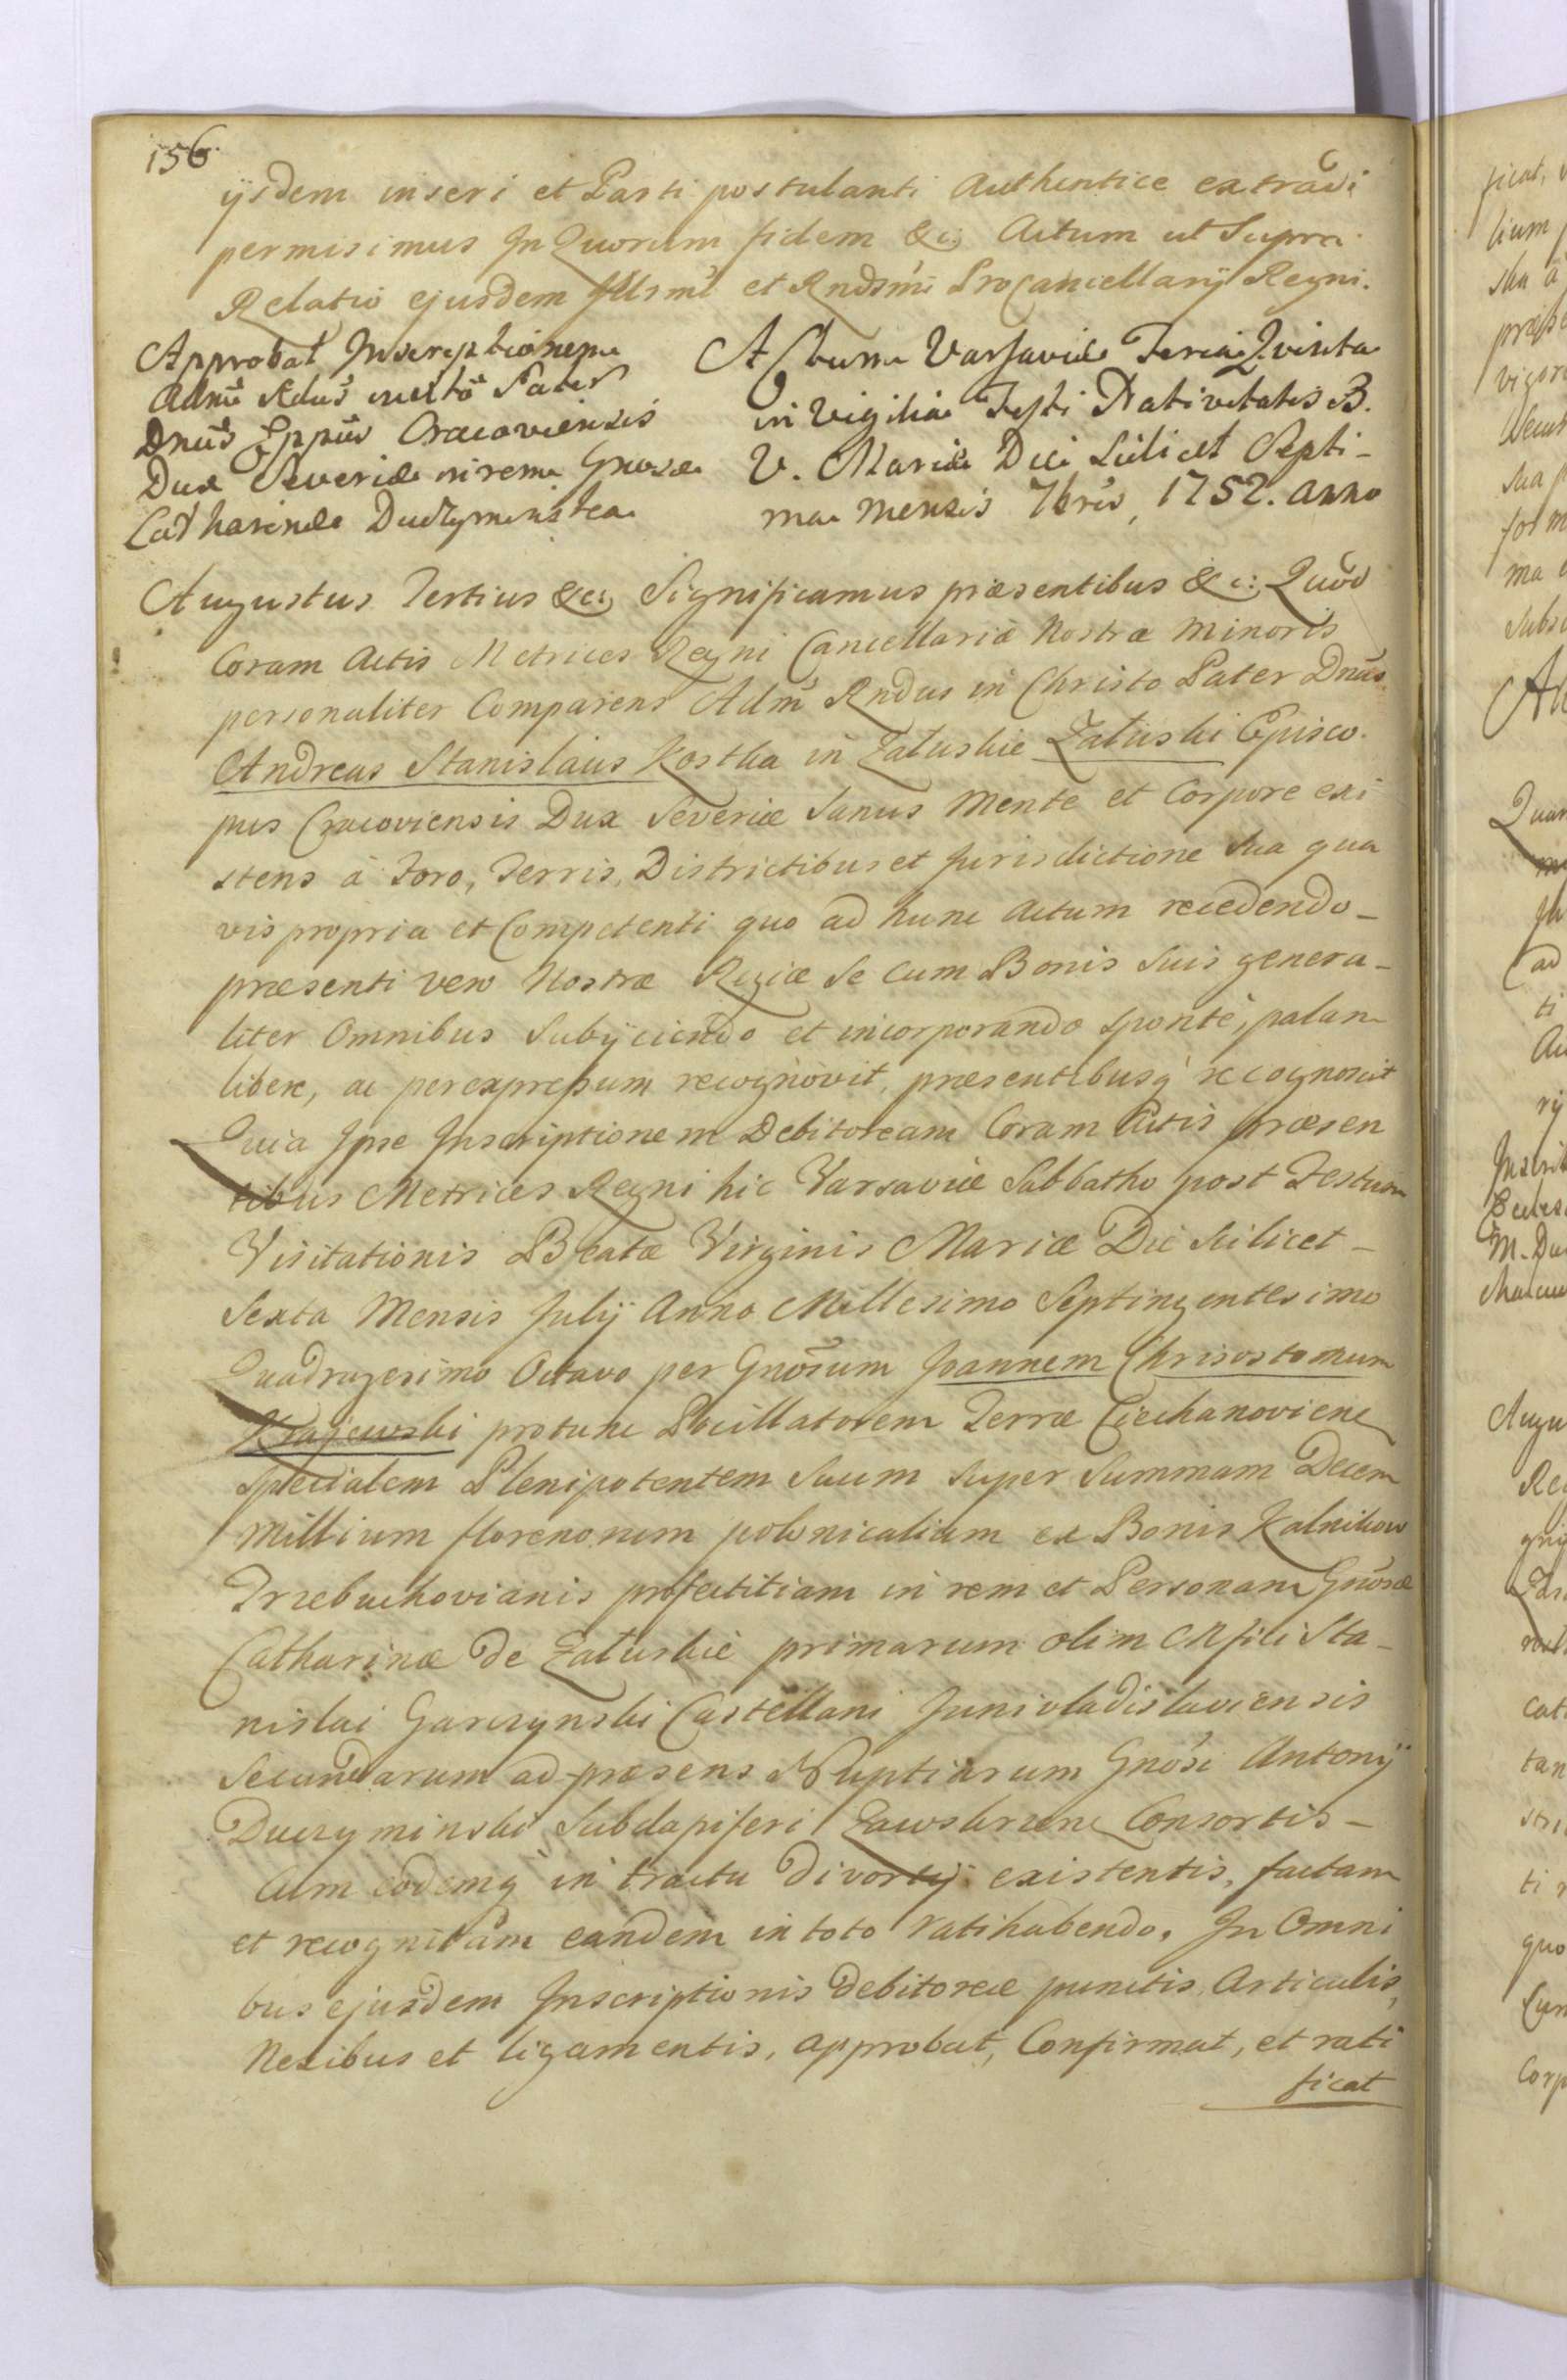 156.
ijsdem inseri et Parti postulanti Authentice extradi
permisimus In Quorum fidem &c; Actum ut Supra
Relatio ejusdem Illsmi et Rndsmi ProCancellarij Regni.
Approbat Inscriptionem
Admũ Rdus multo Pater
Dnũs Eppũs Cracoviensis
Dux Severiæ in rem Gnosæ
Catharinæ Duczyminska
Actum Varsaviæ Feria Qvinta
in Vigilia Festi Nativitatis B.
V. Mariæ Die Scilicet Septi-
ma mensis 7bris, 1752. anno
Augustus Tertius &c; Significamus præsentibus &c; Quod
Coram Actis Metrices Regni Cancellariæ Nostræ Minoris
personaliter Comparens Adm̃ Rndus in Christo Pater Dnũs
Andreas Stanislaus Kostka in Załuskie Załuski Episco.
pus Cracoviensis Dux Severiæ Sanus Mente et Corpore exi
stens à Foro, Terris, Districtibus et Jurisdictione Sua qua
vis propria et Competenti quo ad hunc Actum recedendo_
præsenti vero Nostræ Regiæ Se cum Bonis Suis genera_
liter Omnibus Subijciendo et incorporando sponte, palam
libere, ac per expressum recognovit, præsentibusq́ recognoscit
Quia Ipse Inscriptionem Debitoream Coram Actis præsen
tibus Metrices Regni hic Varsaviæ Sabbatho post Festum
Visitationis Beatæ Virginis Mariæ Die Scilicet_
Sexta Mensis Julij Anno Millesimo Septingentesimo
Quadragesimo Octavo per Gnõsum Joannem Chrisostomum
Krajewski protunc Pocillatorem Terræ Ciechanoviene
Specialem Plenipotentem Suum Super Summam Decem
Millium florenorum polonicalium ex Bonis Kalnikow
Trzebuchovianis profectitiam in rem et Personam Gnõsæ
Catharinæ de Załuskie primarum olim Mfici Sta_
nislai Garczynski Castellani Junivladislaviensis
Secundarum ad præsens Nuptiarum Gnõsi Antonij
Duczyminski Subdapiferi Zawskrzene Consortis_
Cum eodemq́ in tractu divortij existentis, factam
et recognitam eandem in toto ratihabendo, In Omni
bus ejusdem Inscriptionis Debitoreæ punctis Articulis,
Nexibus et ligamentis, approbat, Confirmat, et rati
ficat